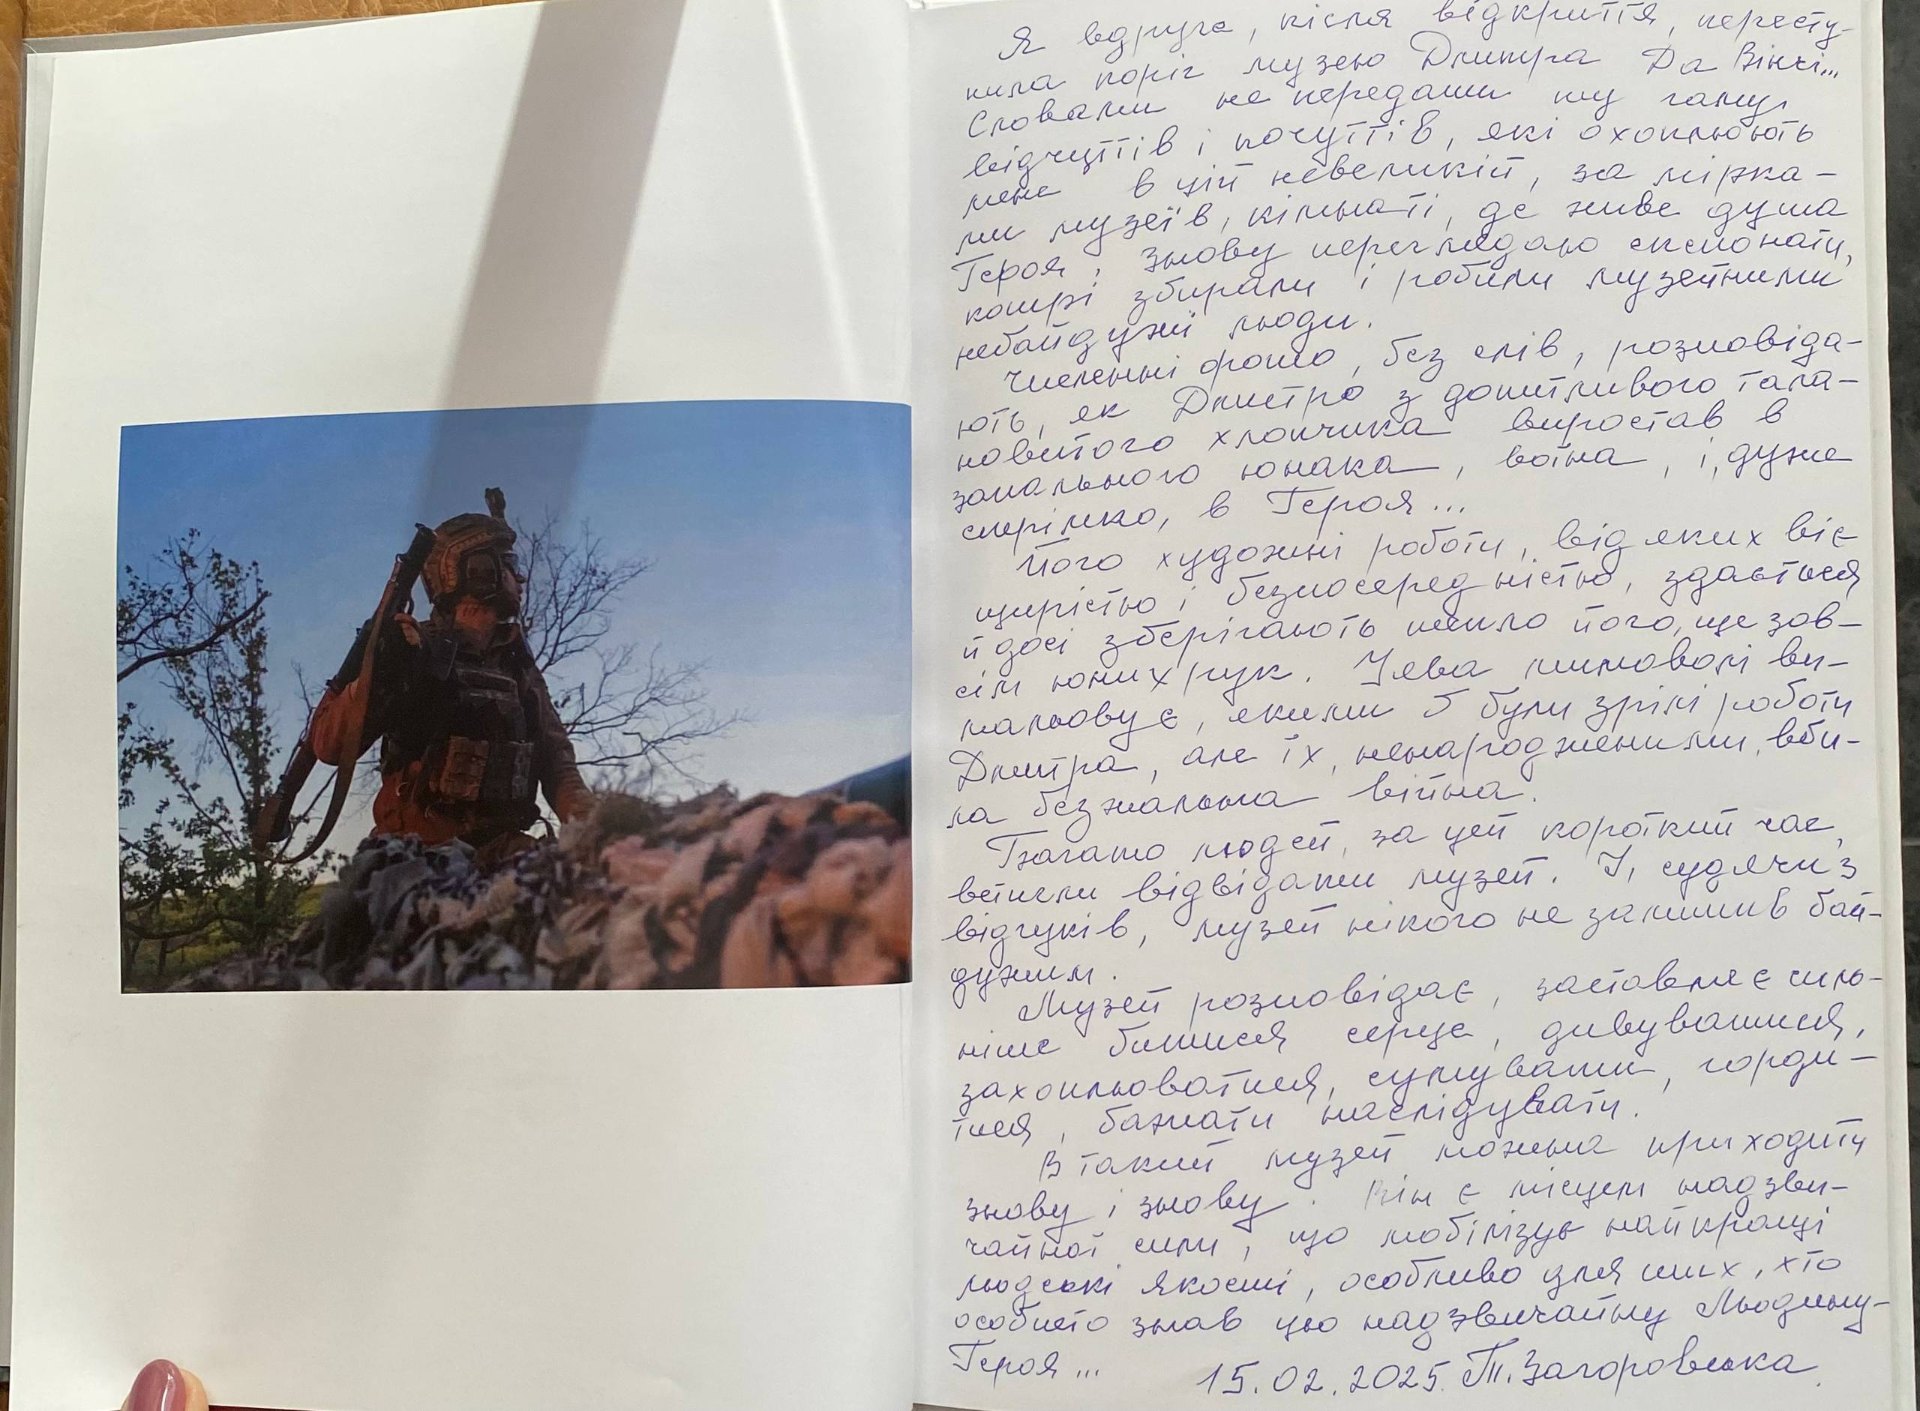 Я вдруге, після відкриття, пересту-
пила поріг музею Дмитра Да Вінчі...
Словами не передати ту гаму
відчуттів і почуттів, які охоплюють
мене в цій невеликій, за мірка-
ми музеїв, кімнаті, де живе душа
Героя. Знову переглядаю експонати,
котрі збирали і робили музейними
небайдужі люди.
Численні фото, без слів, розповіда-
ють, як Дмитро з допитливого тала-
новитого хлопчика виростав в
запального юнака, воїна, і, дуже
стрімко, в Героя...
Його художні роботи, від яких віє
щирістю і безпосередністю, здається
й досі зберігають тепло його, ще зов-
сім юних рук. Уява мимоволі ви-
мальовує, якими б були зрілі роботи
Дмитра, але їх, ненародженими, вби-
ла безжальна війна.
Багато людей, за цей короткий час,
встигли відвідати музей. І, судячи з
відгуків, музей нікого не залишив бай-
дужим.
Музей розповідає, заставляє силь-
ніше битися серце, дивуватися,
захоплюватися, сумувати, горди-
тися, бажати наслідувати.
В такий музей можна приходити
знову і знову. Він є місцем надзви-
чайної сили, що мобілізує найкращі
людські якості, особливо для тих, хто
особисто знав цю надзвичайну Людину-
Героя...
15.02.2025. Т. Загоровська